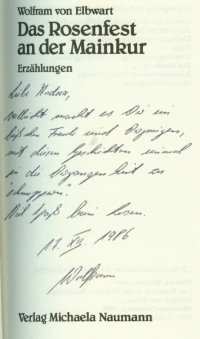 Wolfram von Elbwart
Das Rosenfest
an der Mainkur
Erzählungen
Liebe Andrea,
vielleicht macht es Dir ein
bißchen Freude und Vergnügen,
mit diesen Geschichten einmal
in die Vergangenheit zu
schnuppern.
Viel Spaß beim Lesen.
17. XII. 1986
Wolfram
Verlag Michaela Naumann